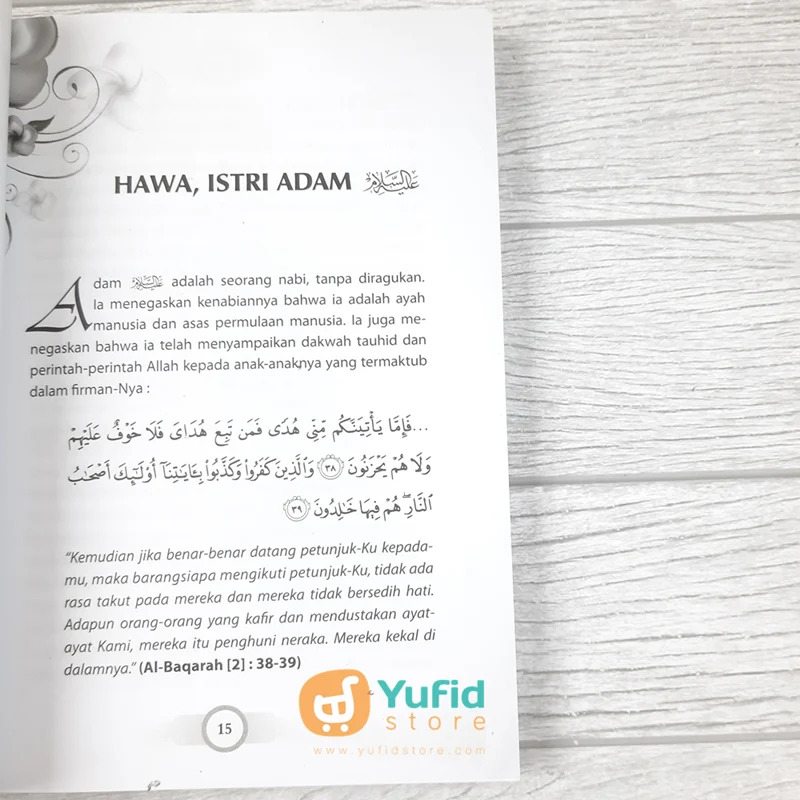 HAWA, ISTRI ADAM عليه السلام
Adam عليه السلام adalah seorang nabi, tanpa diragukan.
Ia menegaskan kenabiannya bahwa ia adalah ayah
manusia dan asas permulaan manusia. Ia juga me-
negaskan bahwa ia telah menyampaikan dakwah tauhid dan
perintah-perintah Allah kepada anak-anaknya yang termaktub
dalam firman-Nya :
...فَإِمَّا يَأْتِيَنَّكُم مِّنِّي هُدًى فَمَن تَبِعَ هُدَايَ فَلَا خَوْفٌ عَلَيْهِمْ
وَلَا هُمْ يَحْزَنُونَ ﴿٣٨﴾ وَالَّذِينَ كَفَرُوا۟ وَكَذَّبُوا۟ بِـَٔايَـٰتِنَآ أُو۟لَـٰٓئِكَ أَصْحَـٰبُ
ٱلنَّارِ ۖ هُمْ فِيهَا خَـٰلِدُونَ ﴿٣٩﴾
“Kemudian jika benar-benar datang petunjuk-Ku kepada-
mu, maka barangsiapa mengikuti petunjuk-Ku, tidak ada
rasa takut pada mereka dan mereka tidak bersedih hati.
Adapun orang-orang yang kafir dan mendustakan ayat-
ayat Kami, mereka itu penghuni neraka. Mereka kekal di
dalamnya.” (Al-Baqarah [2] : 38-39)
15
Yufid
store
www.yufidstore.com